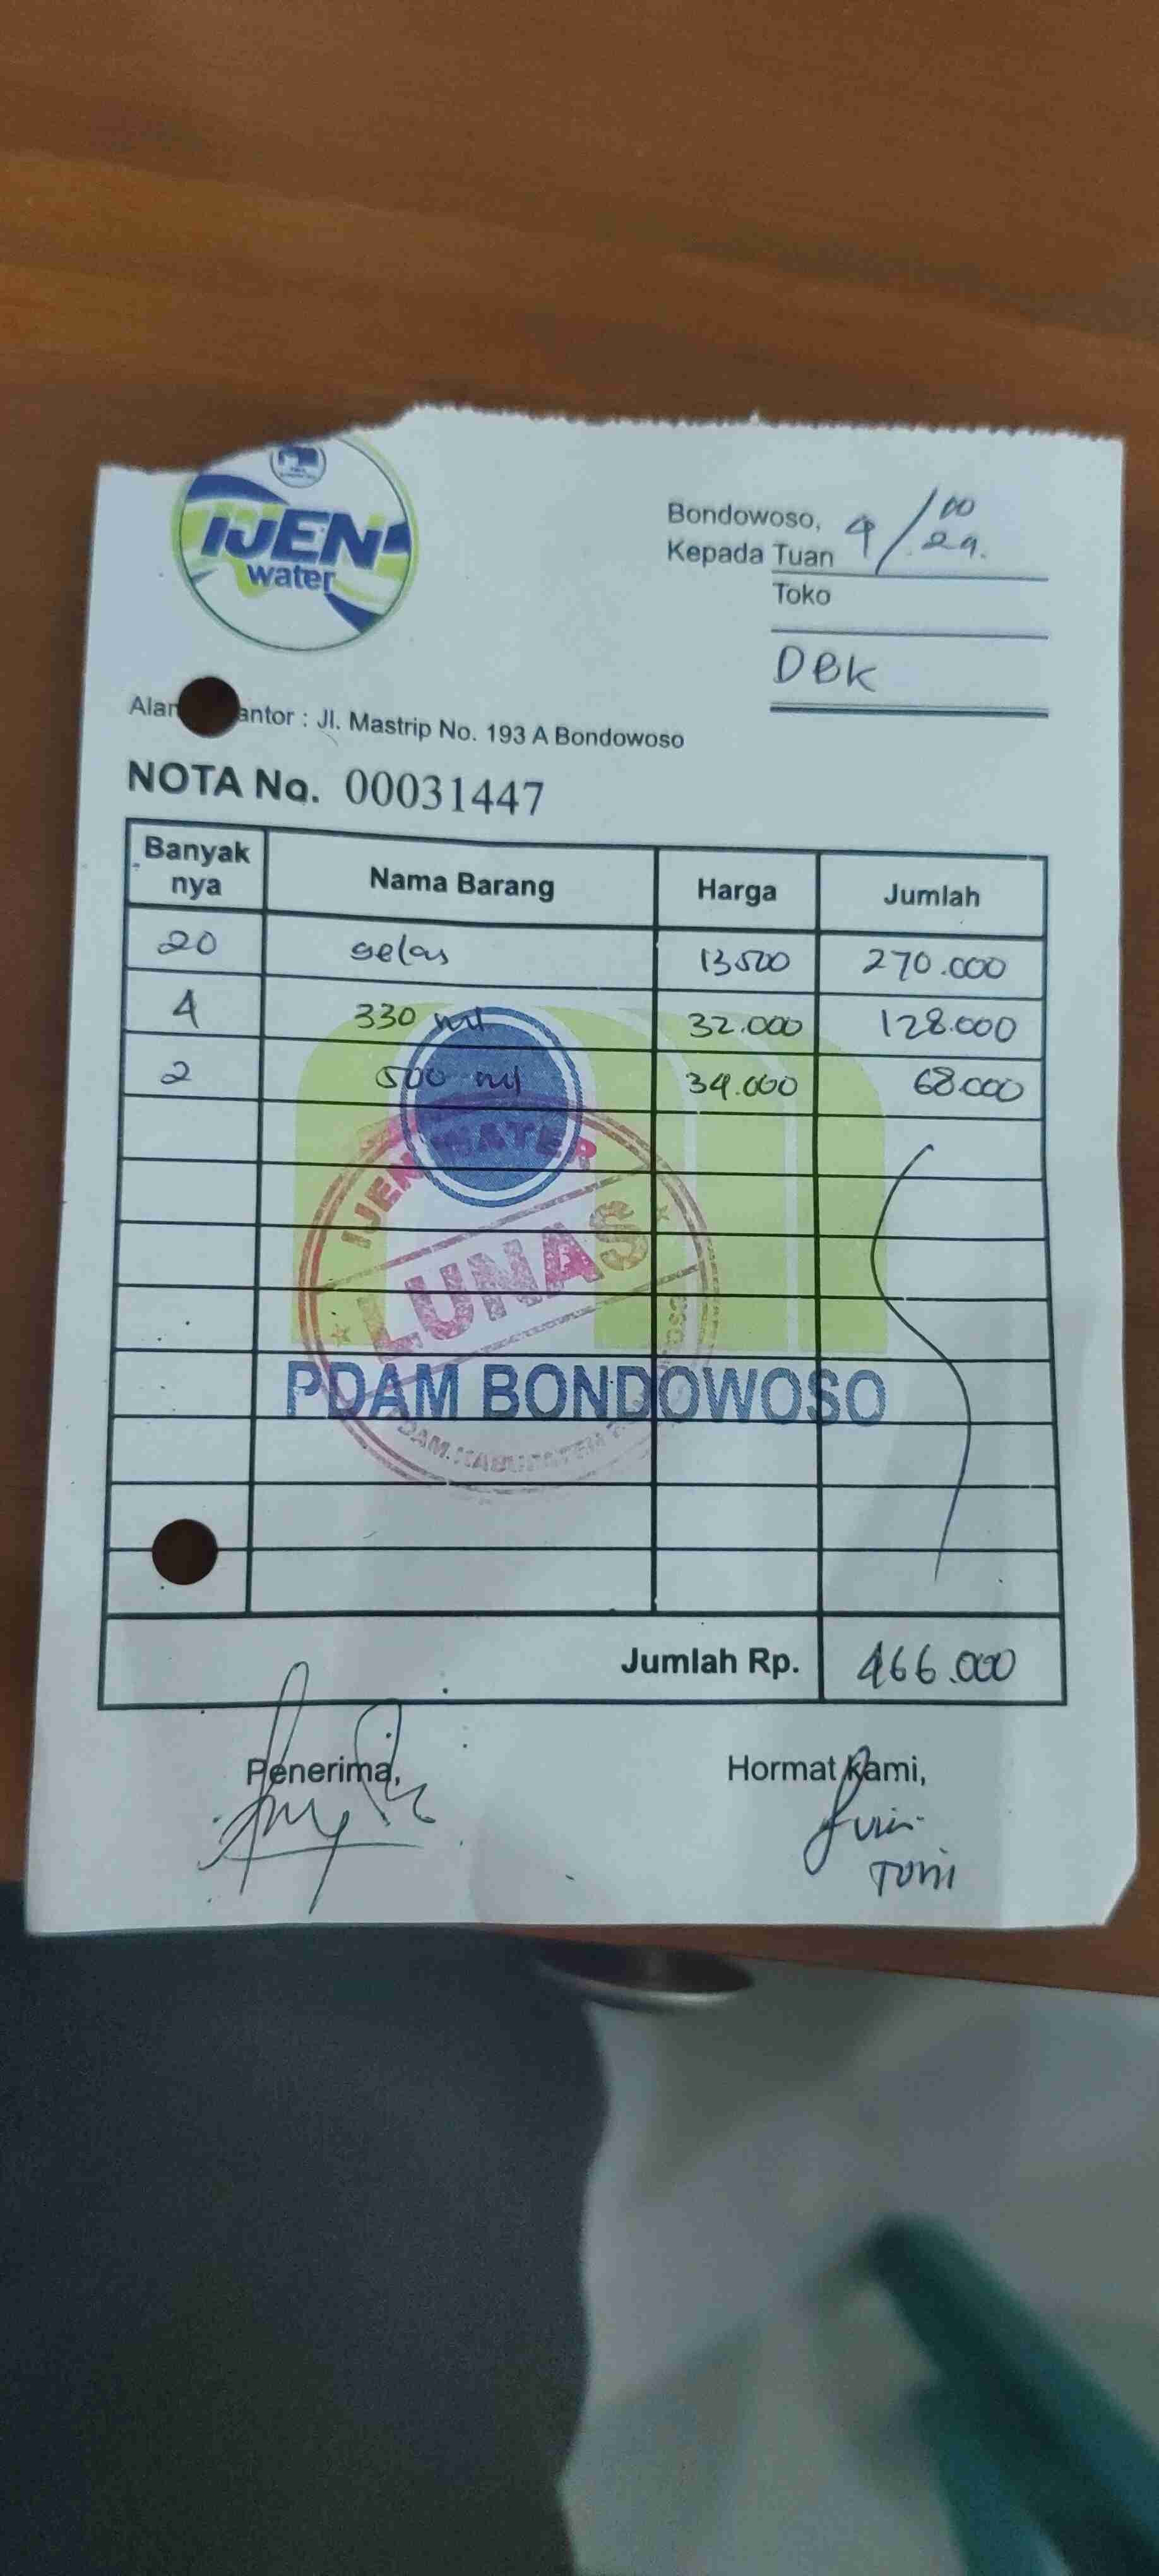 IJEN
water
Bondowoso, 4/10
Kepada Tuan 24.
Toko
DBK
antor : Jl. Mastrip No. 193 A Bondowoso
NOTA No. 00031447
Banyak nya Nama Barang Harga Jumlah
20 gelas 13500 270.000
4 330 ml 32.000 128.000
2 500 ml 34.000 68.000
IJEN WATER
LUNAS
PDAM BONDOWOSO
PDAM KABUPATEN
Jumlah Rp. 466.000
Penerima, Hormat Kami,
Toni